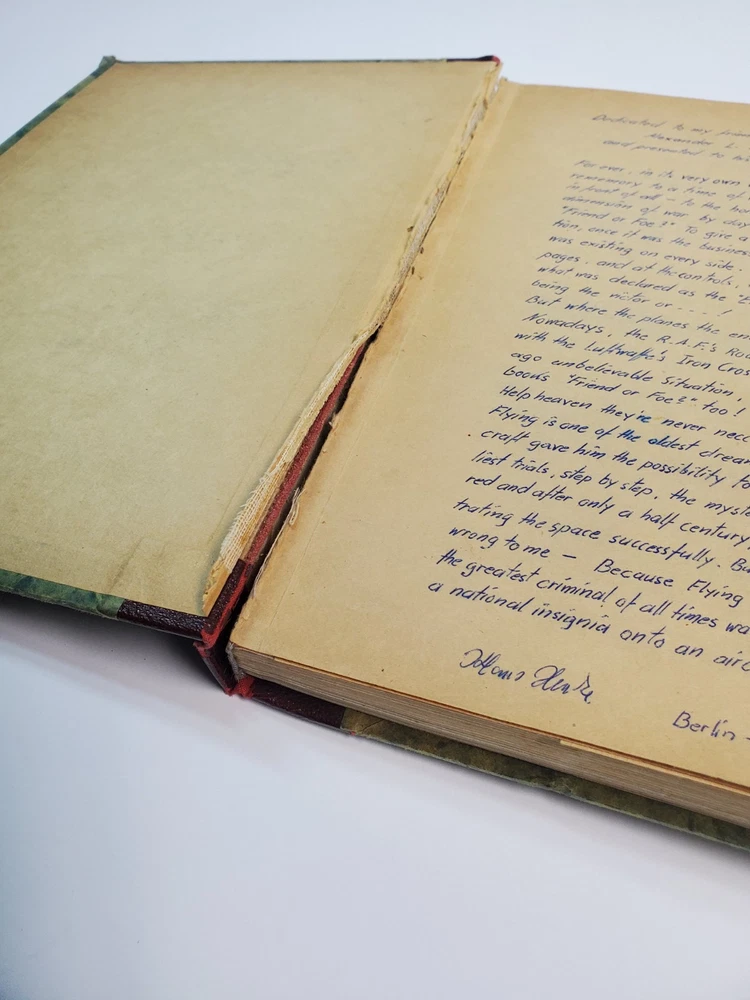 Dedicated to my frien
Alexander L.
and presented to hi
For ever, in its very own
rememory to a time of
in front of all – to the ho
dimension of war by day
"Friend or Foe?" To give a
tion, once it was the busines
was existing on every side.
pages. and at the controls,
what was declared as the
being the victor or . . . . !
But where the planes the en
Nowadays, the R.A.F.'s Rou
with the Luftwaffe's Iron Cros
ago unbelievable situation,
books "Friend or Foe?" too!
Help heaven they're never nec
Flying is one of the oldest drea
craft gave him the possibility fo
liest trials, step by step, the myste
red and after only a half century
trating the space successfully. Bu
wrong to me – Because Flying
the greatest criminal of all times wa
a national insignia onto an airc
Berlin -